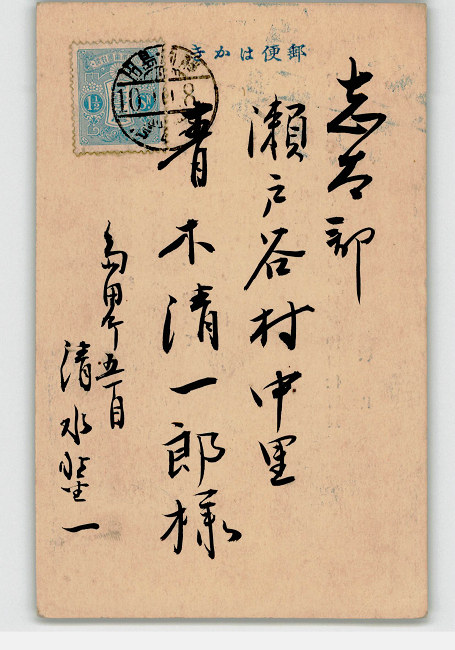 郵便はかき
志太郡
瀬戸谷村中里
青木清一郎様
島田町五丁目
清水
一
1½